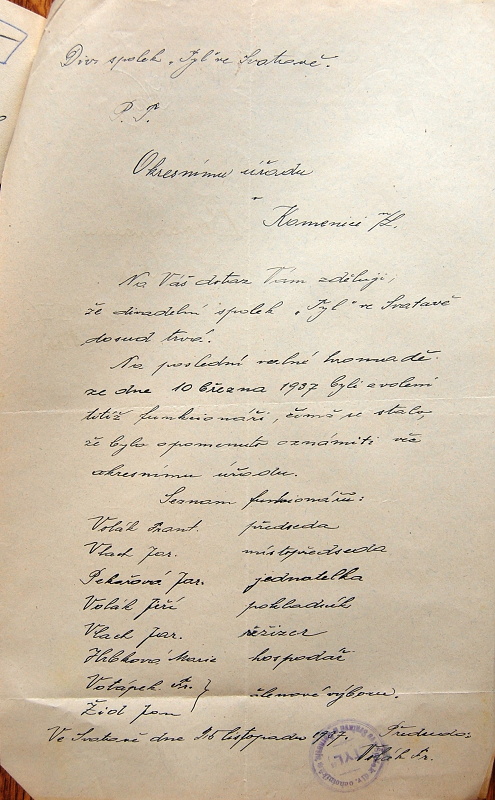 Div. spolek „Tyl“ ve Svatavě.
P. T.
Okresnímu úřadu
v
Kamenici n/L.
Na Váš dotaz Vám sděluji,
že divadelní spolek „Tyl“ ve Svatavě
dosud trvá.
Na poslední valné hromadě
ze dne 10 března 1937 byli zvoleni
titíž funkcionáři, čímž se stalo,
že bylo opomenuto oznámiti vše
okresnímu úřadu.
Seznam funkcionářů:
Volák Frant. předseda
Vlach Jar. místopředseda
Pekařová Jar. jednatelka
Volák Jiří pokladník
Vlach Jar. režizer
Hrbková Marie hospodář
Votápek Fr. } členové výboru.
Žid Jan
Ve Svatavě dne listopadu 1937. Předseda:
Volák Fr.
„TYL“